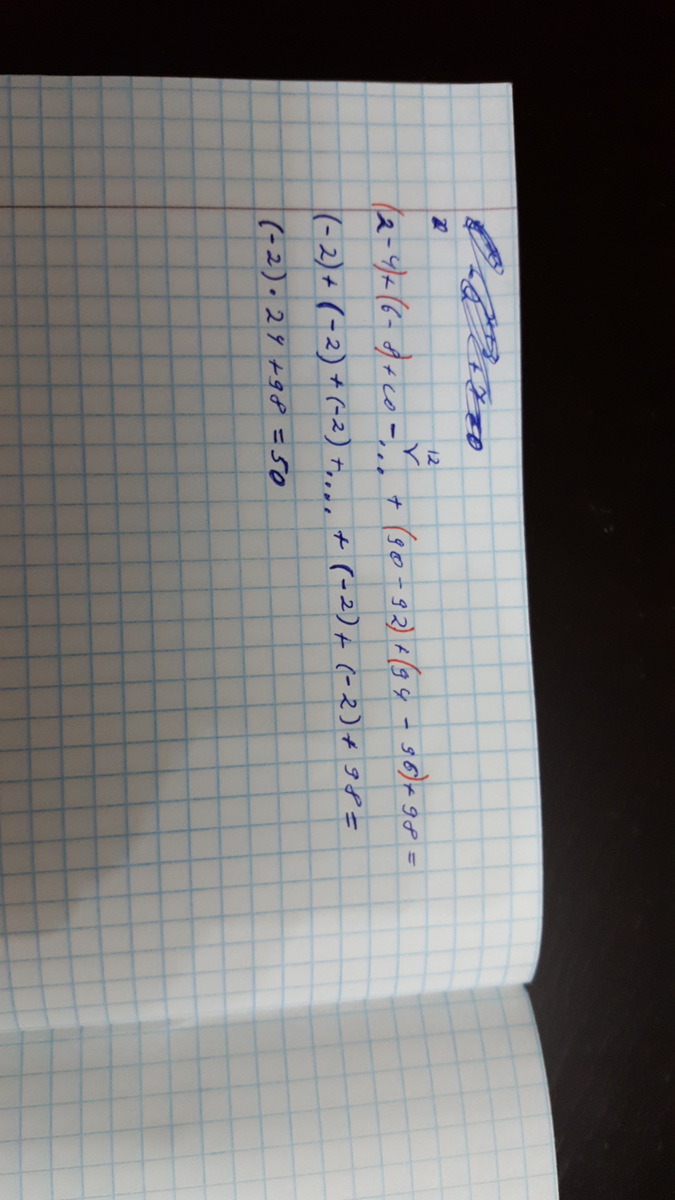 12
(2-4)+(6-8)+10-... + (90-92)+(94-96)+98=
(-2)+(-2)+(-2)+.... + (-2)+(-2)+98=
(-2)·24+98=50